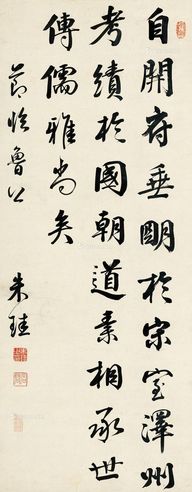 自開府垂明於宗室澤州
考績於國朝道素相承世
傳儒雅尚矣
節臨魯公
朱珪